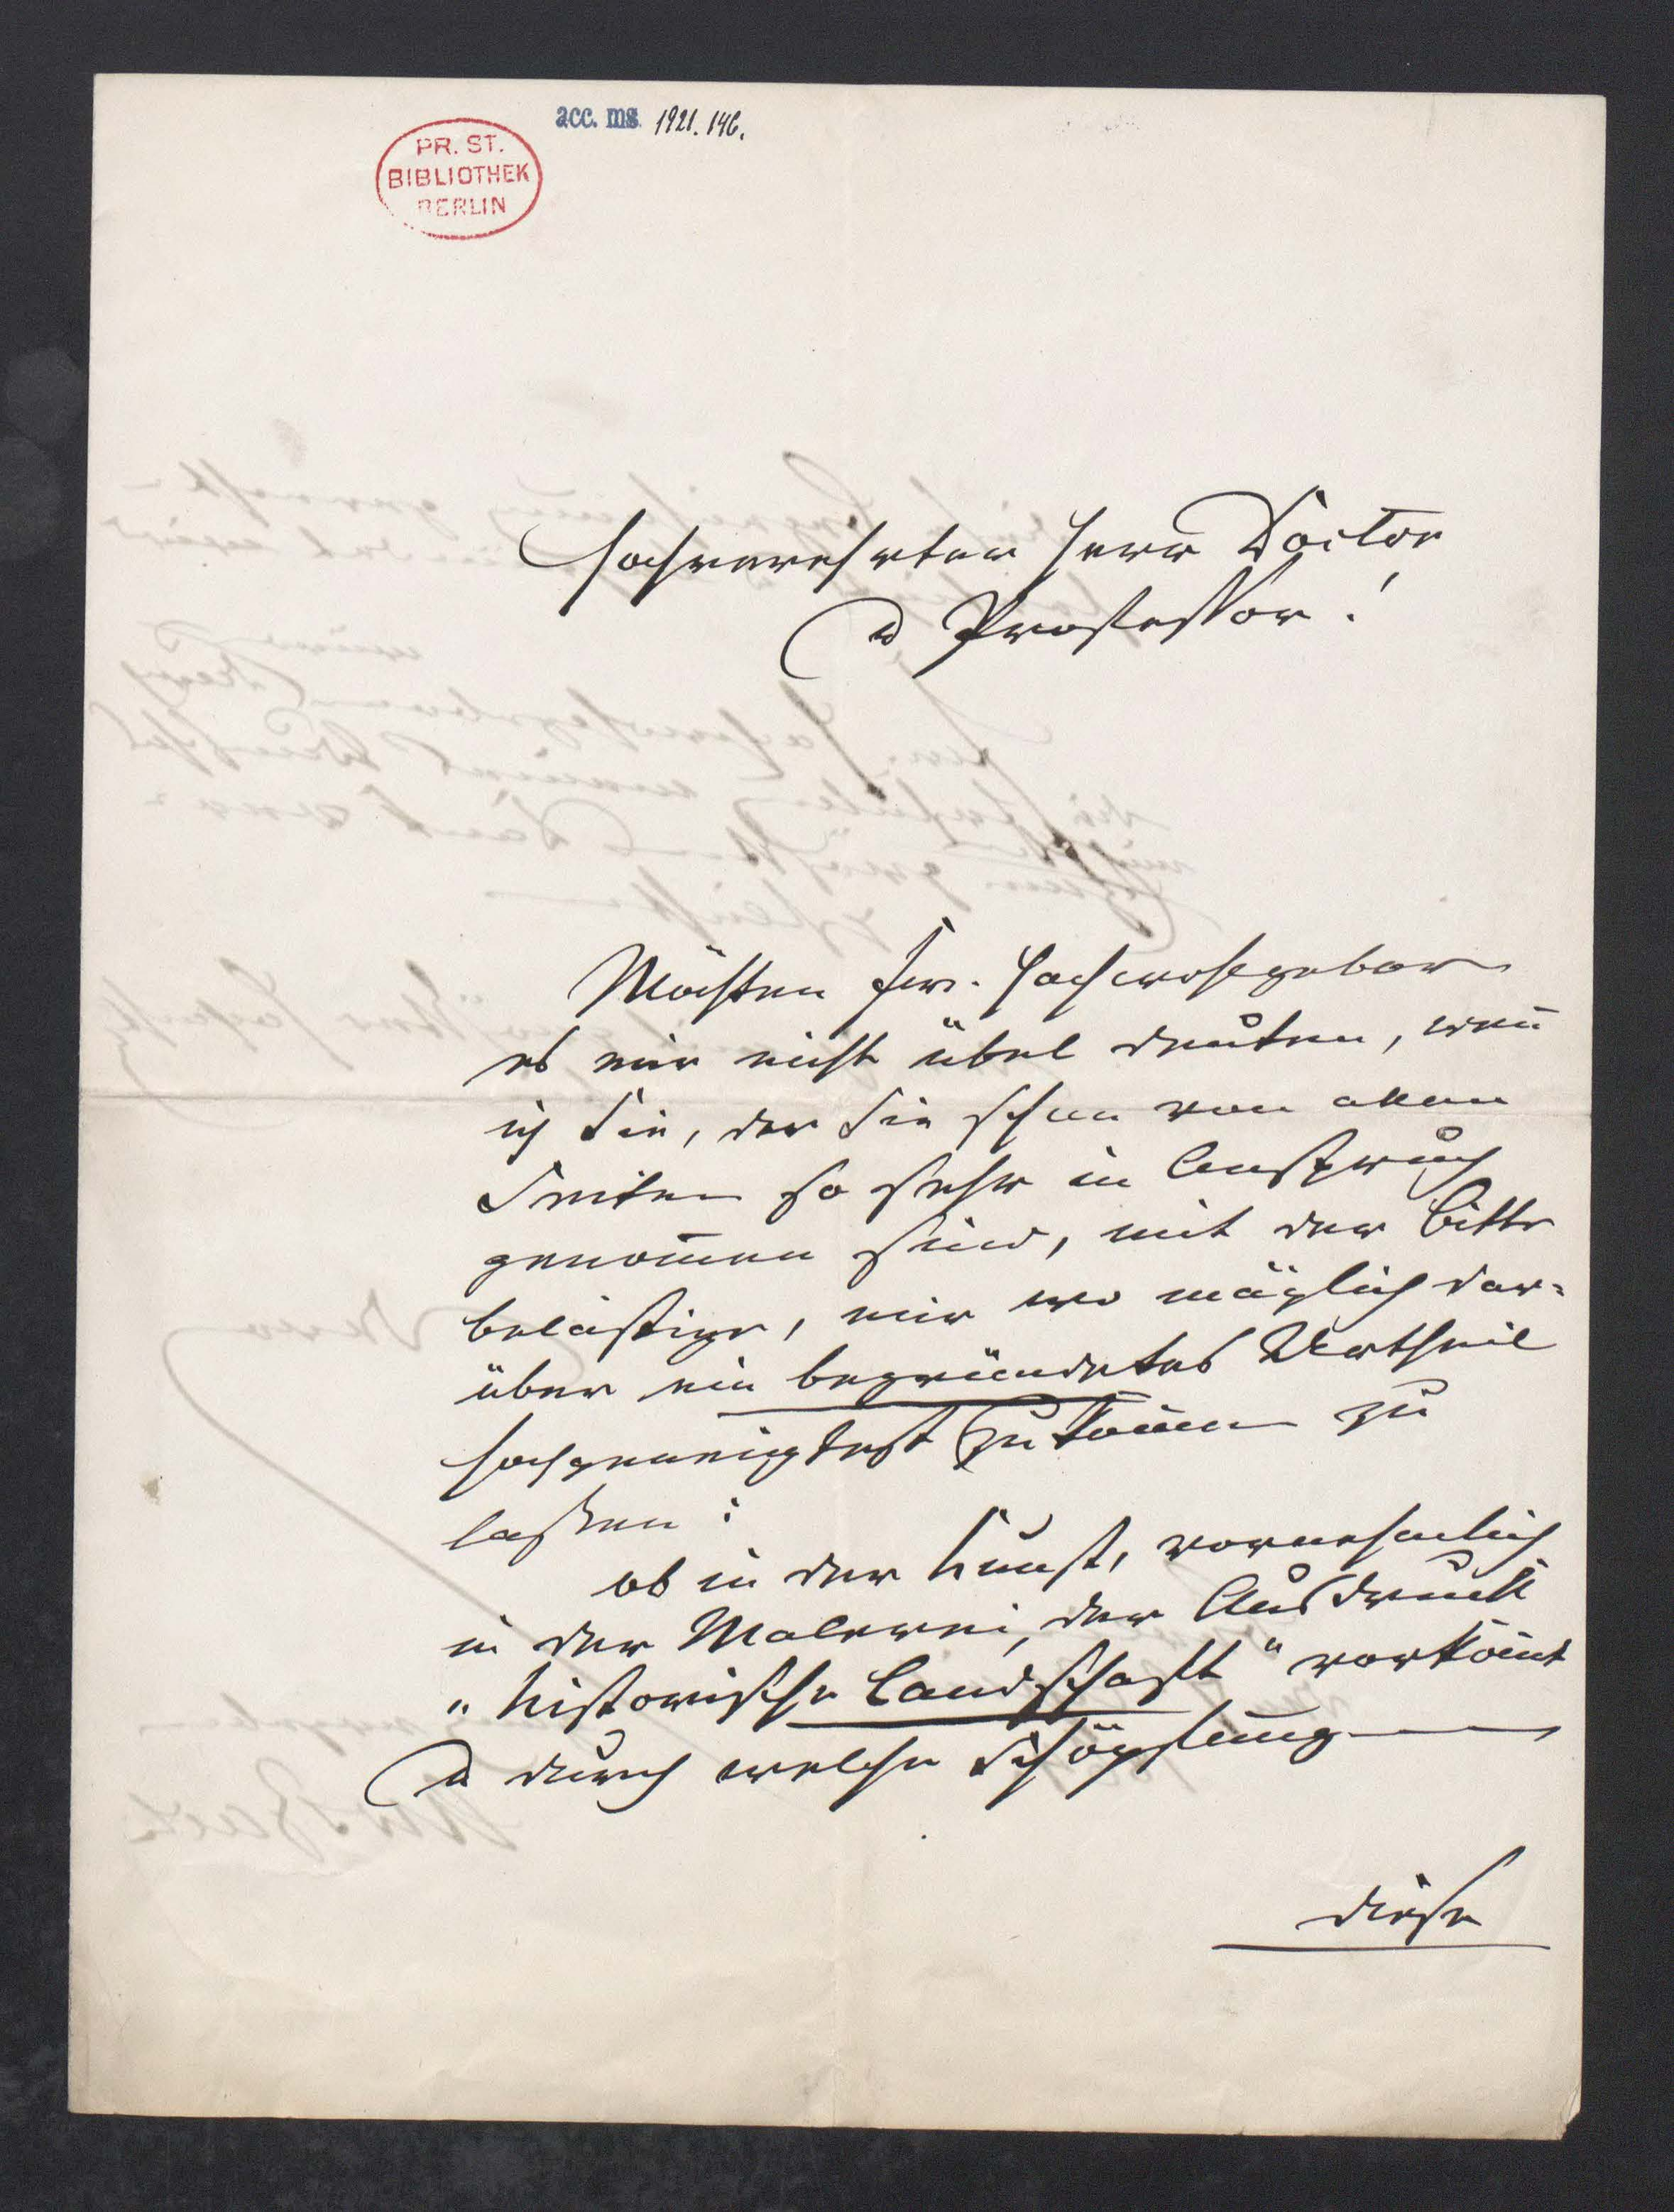 acc. ms. 1921. 146.
PR. ST.
BIBLIOTHEK
BERLIN
Hochverehrter Herr Doctor
u Professor!
Möchten Euer. Hochwohlgeboren
es mir nicht übel deuten, wen̄
ich Sie, der Sie schon von allen
Seiten so sehr in Anspruch
genom̄en sind, mit der Bitte
belästige, mir wo möglich dar-
über ein begründetes Urtheil
hochgeneigtest zukom̄en zu
laßen:
ob in der Kunst, vornehmlich
in der Malerei, der Ausdruck
„historische Landschaft" vorkom̄t
u durch welche Schöpfung
diese